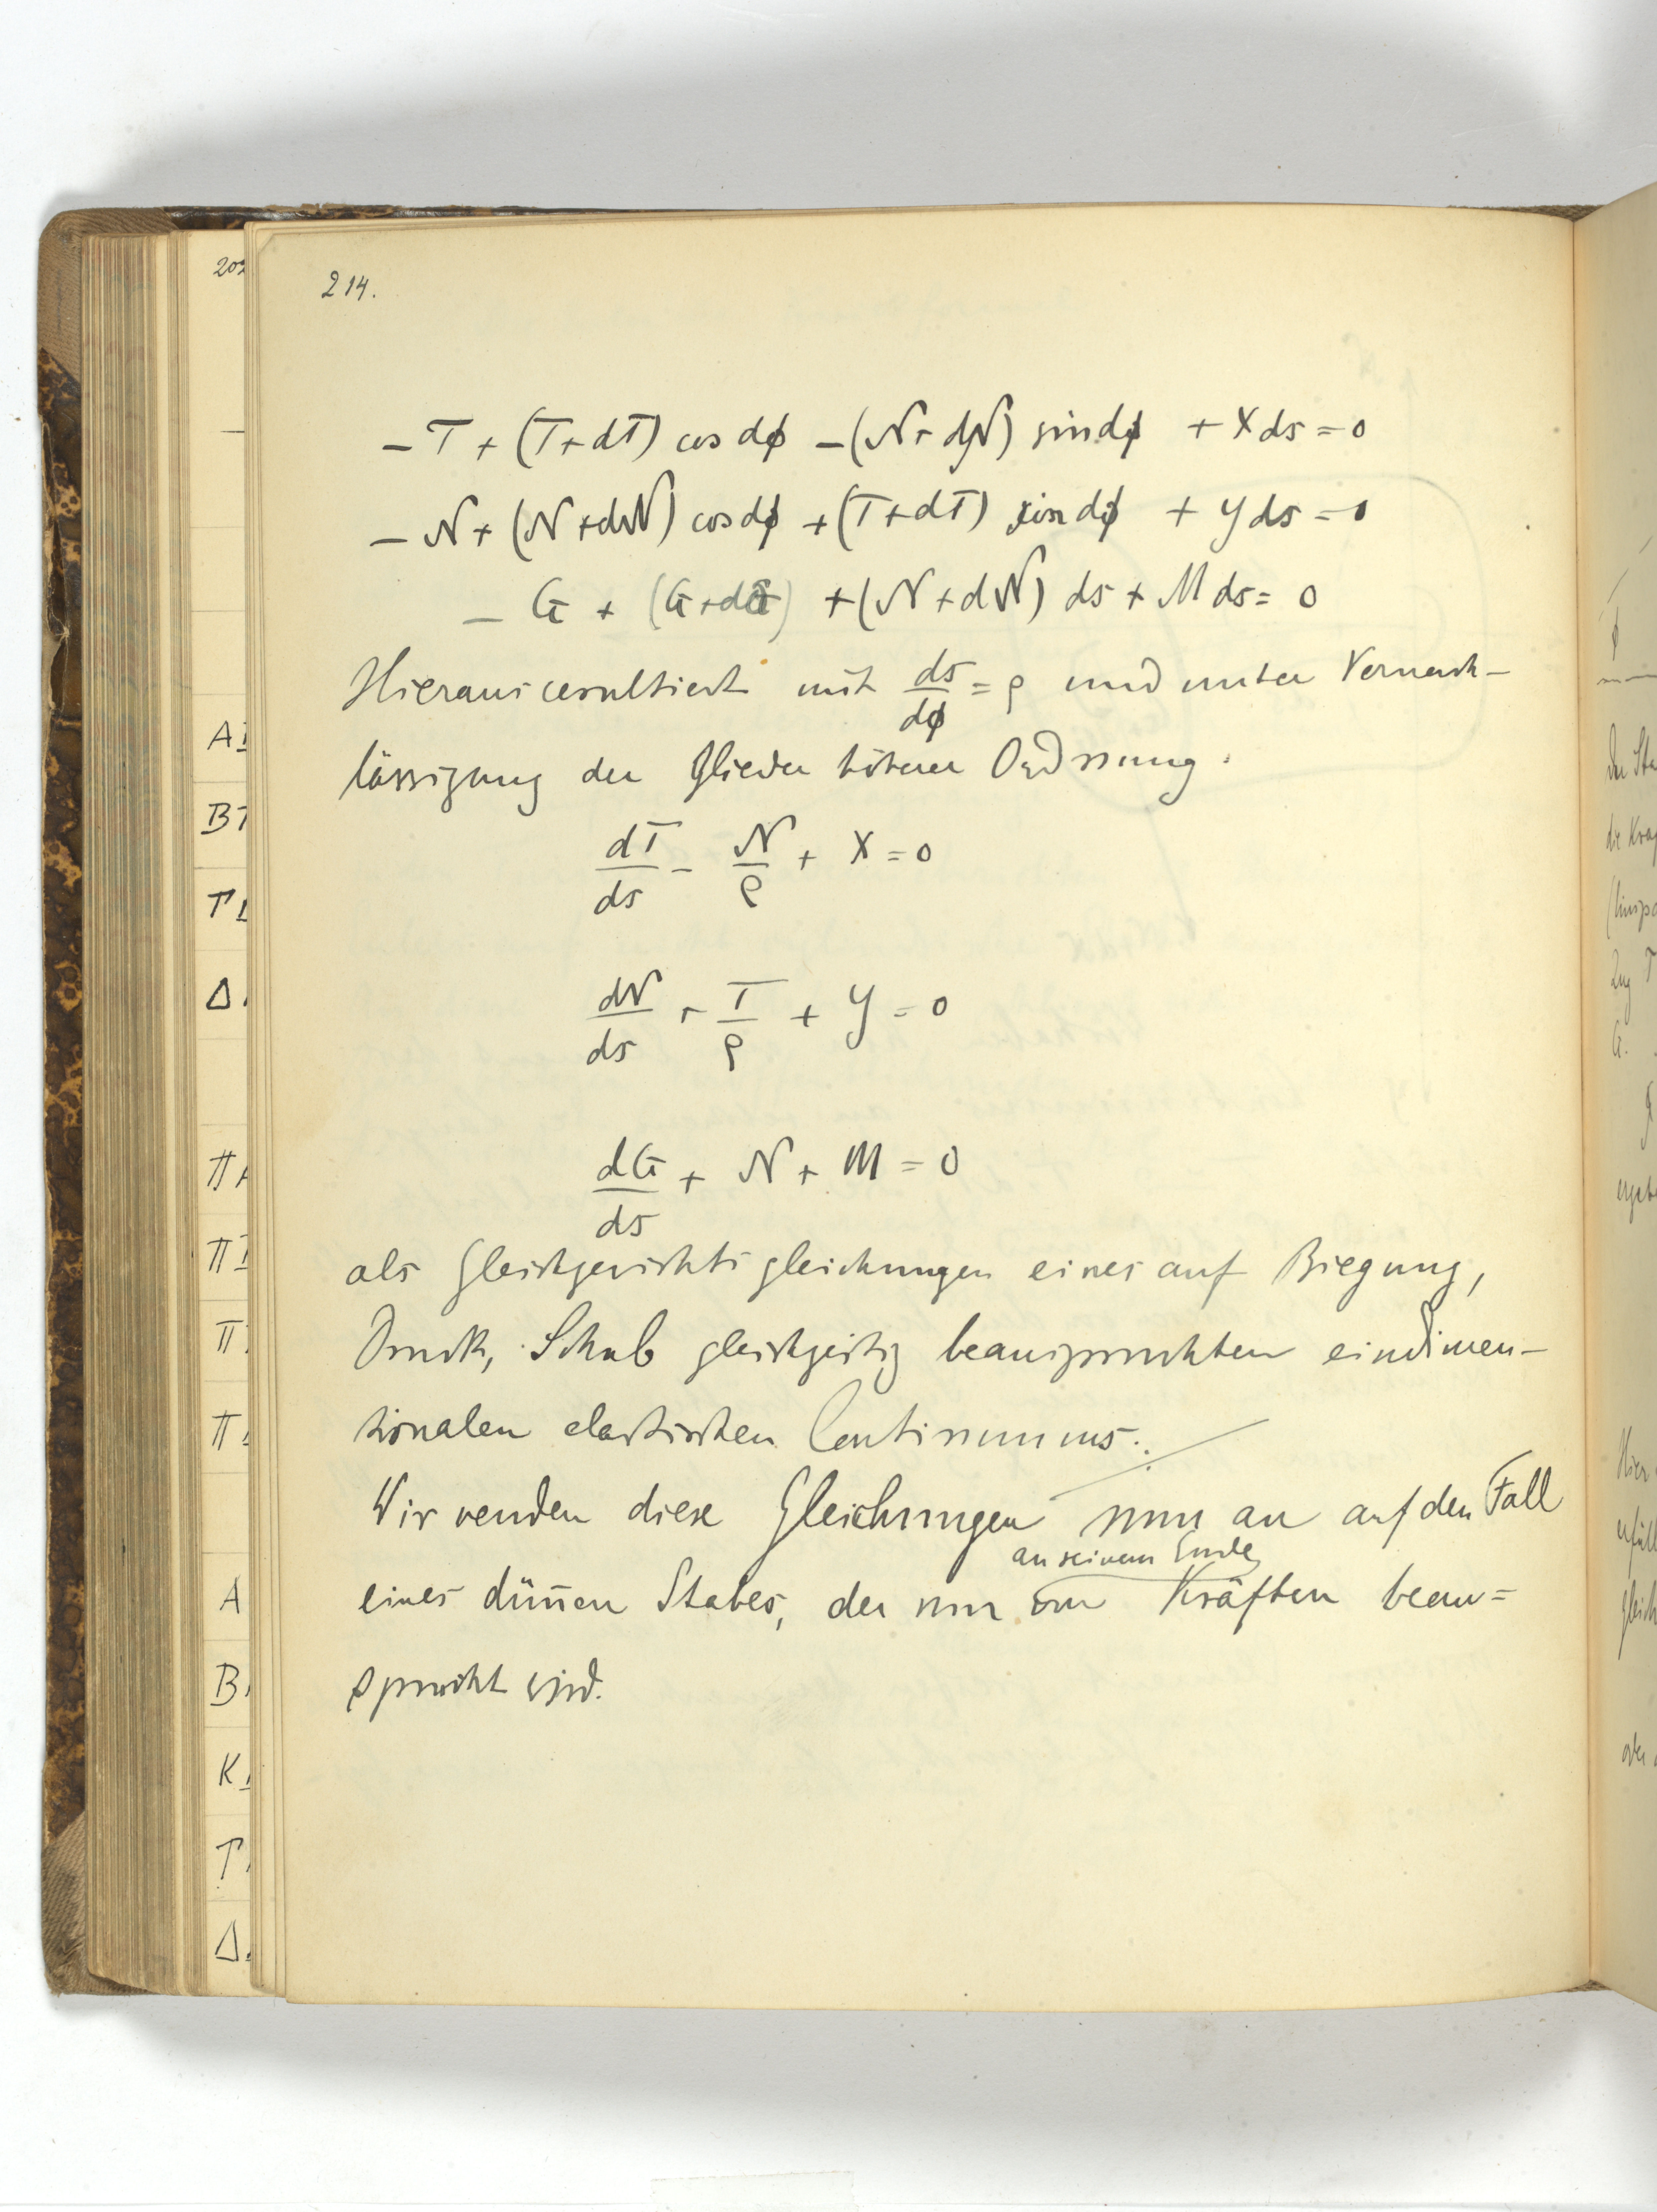 214.
− T + (T + dT) cos dϕ − (N + dN) sin dϕ + X ds = 0
− N + (N + dN) cos dϕ + (T + dT) sin dϕ + Y ds = 0
− G + (G + dG) + (N + dN) ds + M ds = 0
Hieraus resultiert mit ds/dϕ = ρ und unter Vernach-
lässigung der Glieder höherer Ordnung.
dT/ds − N/ρ + X = 0
dN/ds + T/ρ + Y = 0
dG/ds + N + M = 0
als Gleichgewichtsgleichungen eines auf Biegung,
Druck, Schub gleichzeitig beanspruchten eindimen-
sionalen elastischen Continuums.
Wir wenden diese Gleichungen nun an auf den Fall
an seinem Ende
eines dünnen Stabes, der nur von Kräften bean=
sprucht wird.
202
A
B
Γ
Δ
Π
Π
Π
Π
A
B
K
Γ
Δ